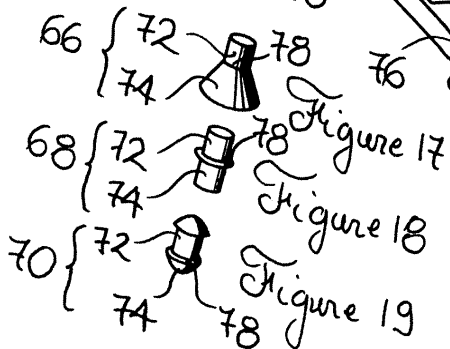 66 72 78
74
76
Figure 17
68 72 78
74
Figure 18
70 72
74 78
Figure 19